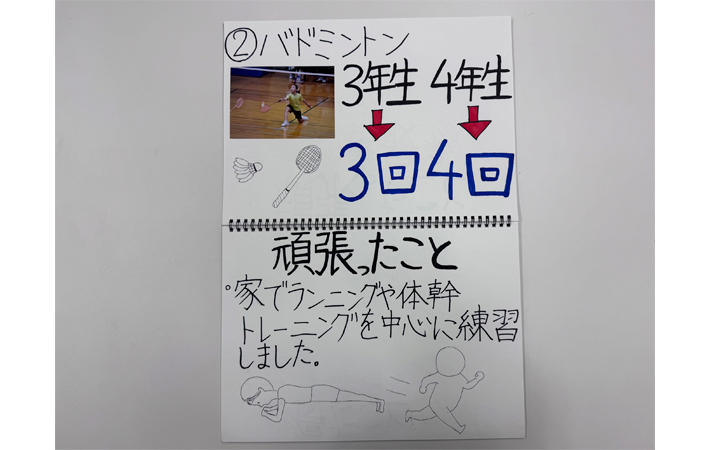 ②バドミントン
3年生 4年生
3回 4回
頑張ったこと
。家でランニングや体幹
トレーニングを中心に練習
しました。